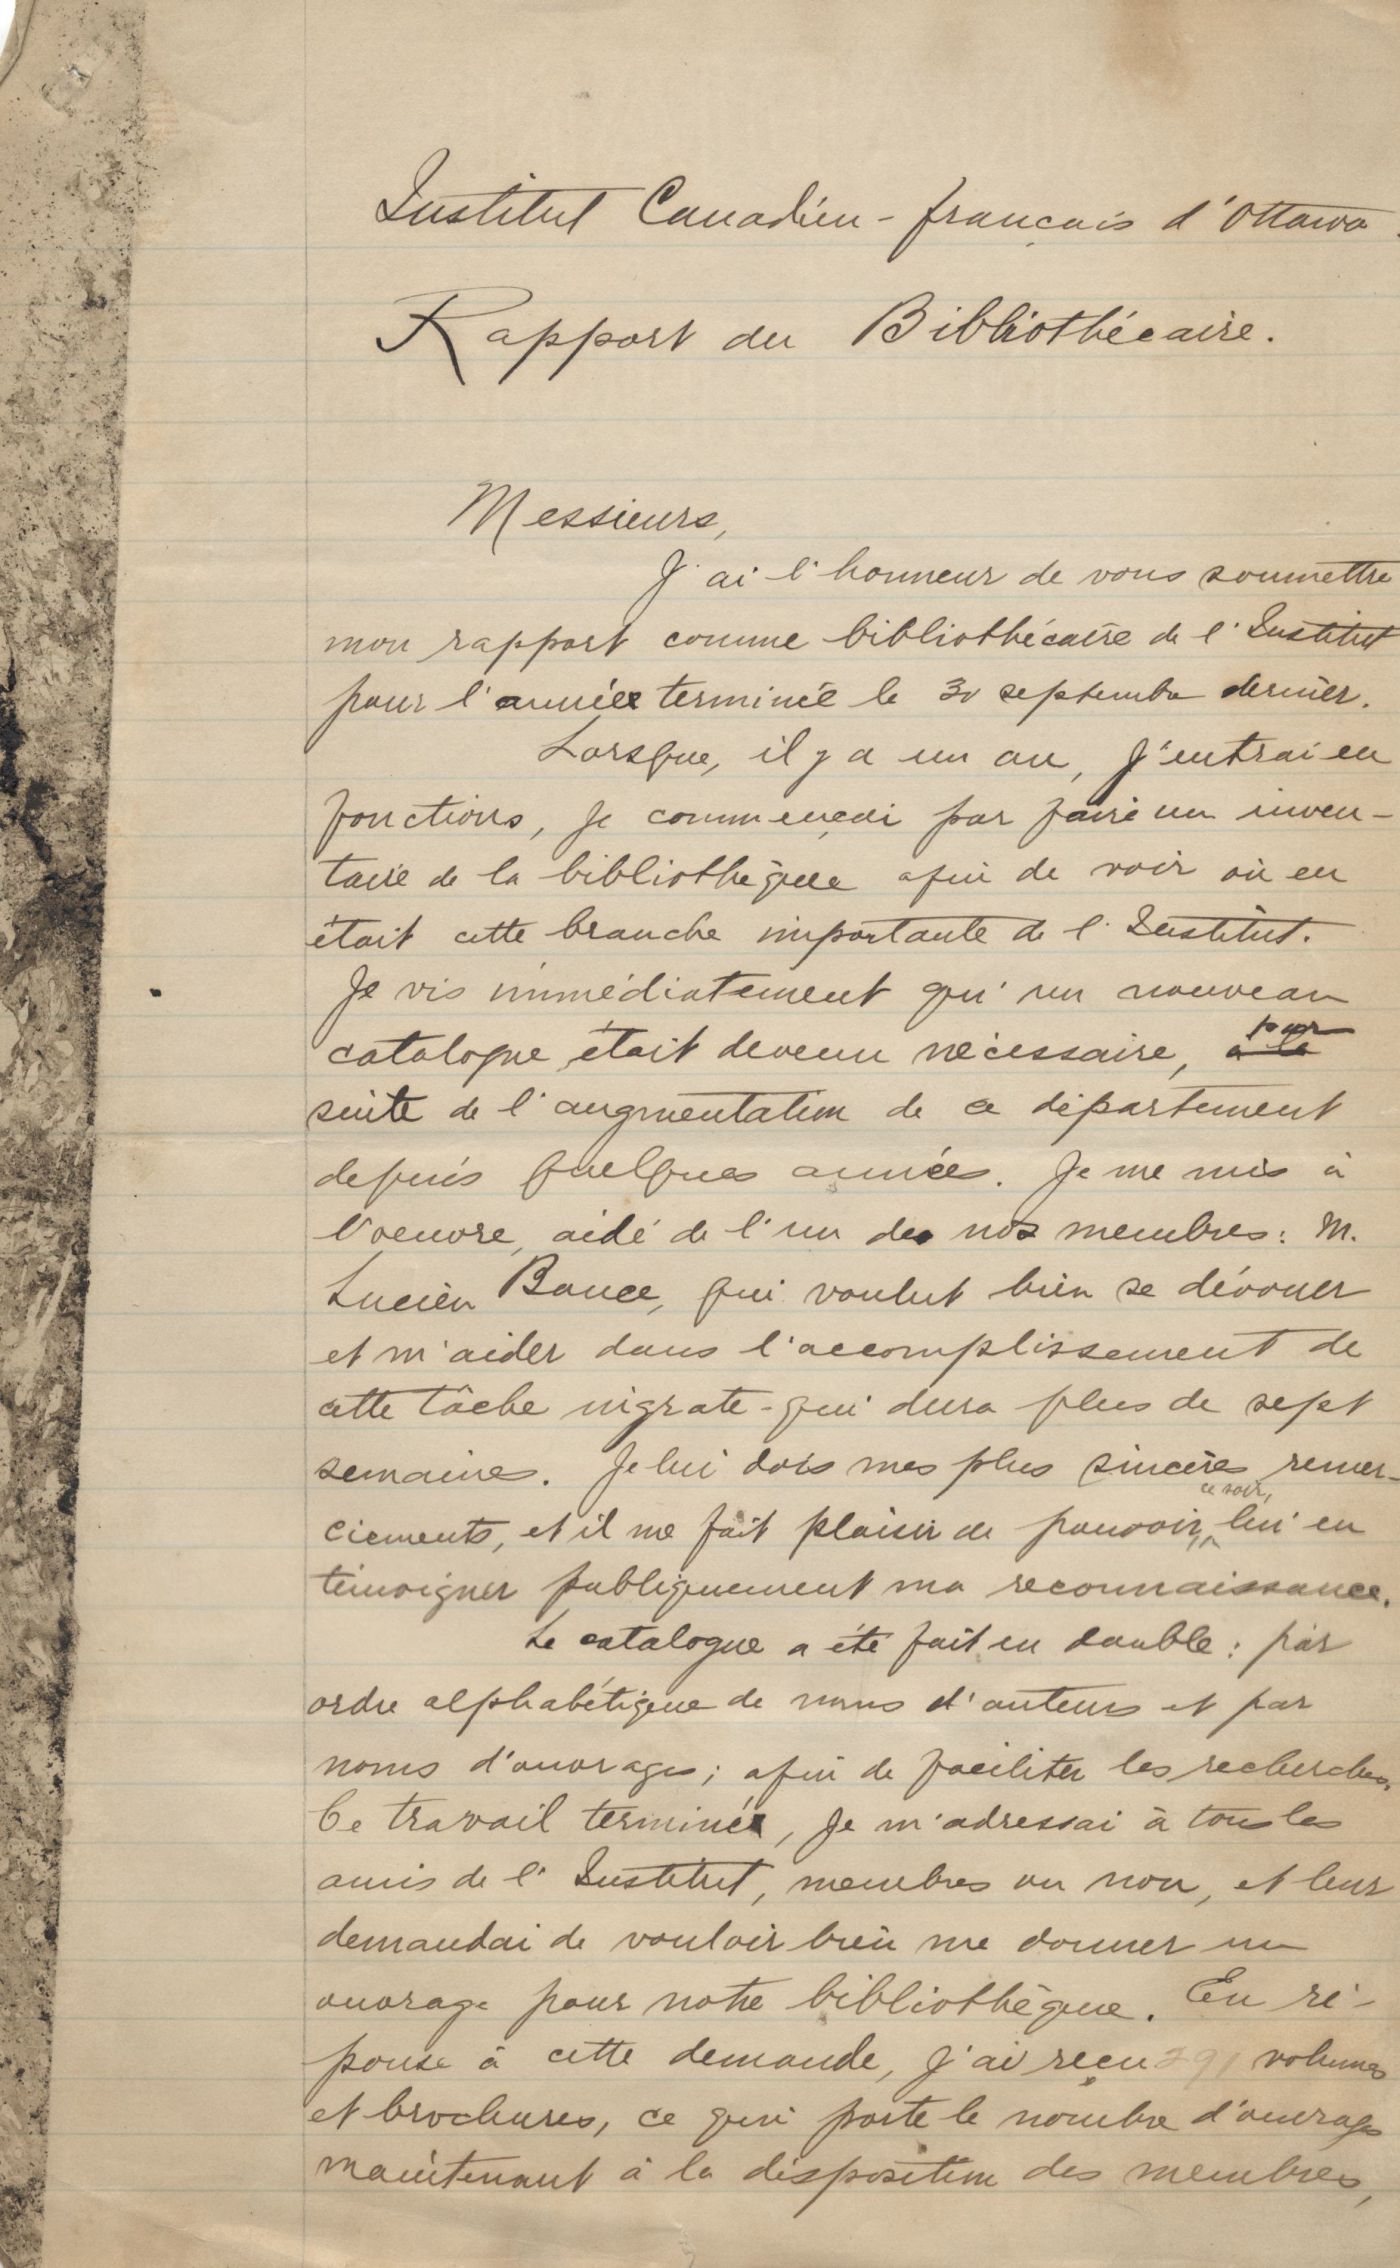 Institut Canadien-français d'Ottawa.
Rapport du Bibliothécaire.
Messieurs,
J'ai l'honneur de vous soumettre
mon rapport comme bibliothécaire de l'Institut
pour l'année terminée le 30 septembre dernier.
Lorsque, il y a un an, j'entrai en
fonctions, je commençai par faire un inven-
taire de la bibliothèque afin de voir où en
était cette branche importante de l'Institut.
Je vis immédiatement qu'un nouveau
catalogue était devenu nécessaire, par
à la
suite de l'augmentation de ce département
depuis quelques années. Je me mis à
l'oeuvre, aidé de l'un de nos membres: M.
Lucien Bance, qui voulut bien se dévouer
et m'aider dans l'accomplissement de
cette tâche ingrate qui dura plus de sept
semaines. Je lui dois mes plus sincères remer-
ce soir,
ciements, et il me fait plaisir de pouvoir, lui en
témoigner publiquement ma reconnaissance.
Le catalogue a été fait en double: par
ordre alphabétique de noms d'auteurs et par
noms d'ouvrages; afin de faciliter les recherches.
Ce travail terminé, je m'adressai à tous les
amis de l'Institut, membres ou non, et leur
demandai de vouloir bien me donner un
ouvrage pour notre bibliothèque. En ré-
ponse à cette demande, j'ai reçu 291 volumes
et brochures, ce qui porte le nombre d'ouvrages
maintenant à la disposition des membres,